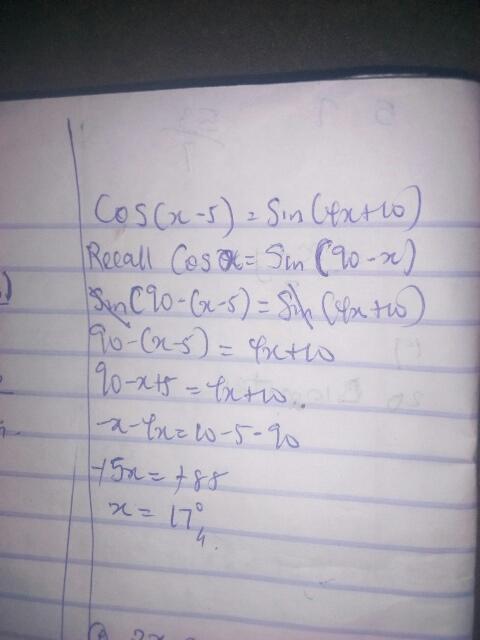 Cos(x-5) = Sin(4x+10)
Recall Cosx = Sin (90-x)
Sin(90-(x-5) = Sin (4x+10)
90-(x-5) = 4x+10
90-x+5 = 4x+10
-x-4x=10-5-90
+5x = +85
x = 17°